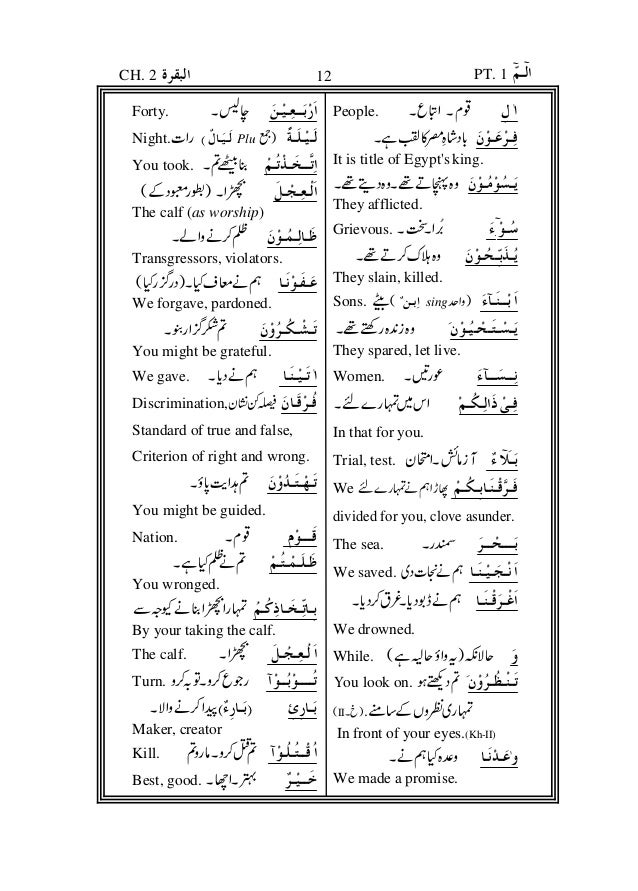 CH. 2 البقرة 12 PT. 1 الٓمّٓ
اٰلِ قوم۔ اتباع۔ People.
فِرْعَوْنَ بادشاہِ مصر کا لقب ہے۔
It is title of Egypt's king.
يَسُوْمُوْنَ وہ پہنچاتے تھے۔ وہ دیتے تھے۔
They afflicted.
سُوْٓءَ بُرا۔ سخت۔ Grievous.
يُذَبِّحُوْنَ وہ ہلاک کرتے تھے۔
They slain, killed.
اَبْنَآءَ (واحد sing اِبنٌ) بیٹے Sons.
يَسْتَحْيُوْنَ وہ زندہ رکھتے تھے۔
They spared, let live.
نِسَآءَ عورتیں۔ Women.
فِىْ ذَالِكُمْ اس میں تمہارے لئے۔
In that for you.
بَلَآءٌ آزمائش۔ امتحان Trial, test.
فَرَّقْنَابِكُمْ پھاڑا ہم نے تمہارے لئے We
divided for you, clove asunder.
بَحْرَ سمندر۔ The sea.
اَنْجَيْنَا ہم نے نجات دی We saved.
اَغْرَقْنَا ہم نے ڈبو دیا۔ غرق کر دیا۔
We drowned.
وَ حالانکہ (یہ واؤ حالیہ ہے) While.
تَنْظُرُوْنَ تم دیکھتے ہو You look on.
تمہاری نظروں کے سامنے۔ (خ۔II)
In front of your eyes.(Kh-II)
وٰعَدْنَا وعدہ کیا ہم نے۔
We made a promise.
اَرْبَعِيْنَ چالیس۔ Forty.
لَيْلَةً (جمع Plu لَيَالٌ) رات Night.
اِتَّخَذْتُمْ بنا بیٹھے تم۔ You took.
اَلْعِجْلَ بچھڑا۔ (بطور معبود کے)
The calf (as worship)
ظَالِمُوْنَ ظلم کرنے والے۔
Transgressors, violators.
عَفَوْنَا ہم نے معاف کیا۔ (درگزر کیا)
We forgave, pardoned.
تَشْكُرُوْنَ تم شکر گزار بنو۔
You might be grateful.
اٰتَيْنَا ہم نے دیا۔ We gave.
فُرْقَانَ فیصلہ کن نشان Discrimination,
Standard of true and false,
Criterion of right and wrong.
تَهْتَدُوْنَ تم ہدایت پاؤ۔
You might be guided.
قَوْمِ قوم۔ Nation.
ظَلَمْتُمْ تم نے ظلم کیا ہے
You wronged.
بِاتِّخَاذِكُمْ تمہارا بچھڑا بنانے کیوجہ سے
By your taking the calf.
اَلْعِجْلَ بچھڑا۔ The calf.
تُوْبُوْآ رجوع کرو۔ توبہ کرو Turn.
بَارِئِ (بَارِءٌ) پیدا کرنے والا۔
Maker, creator
اُقْتُلُوْآ تم قتل کرو۔ مارو تم Kill.
خَيْرٌ بہتر۔ اچھا۔ Best, good.